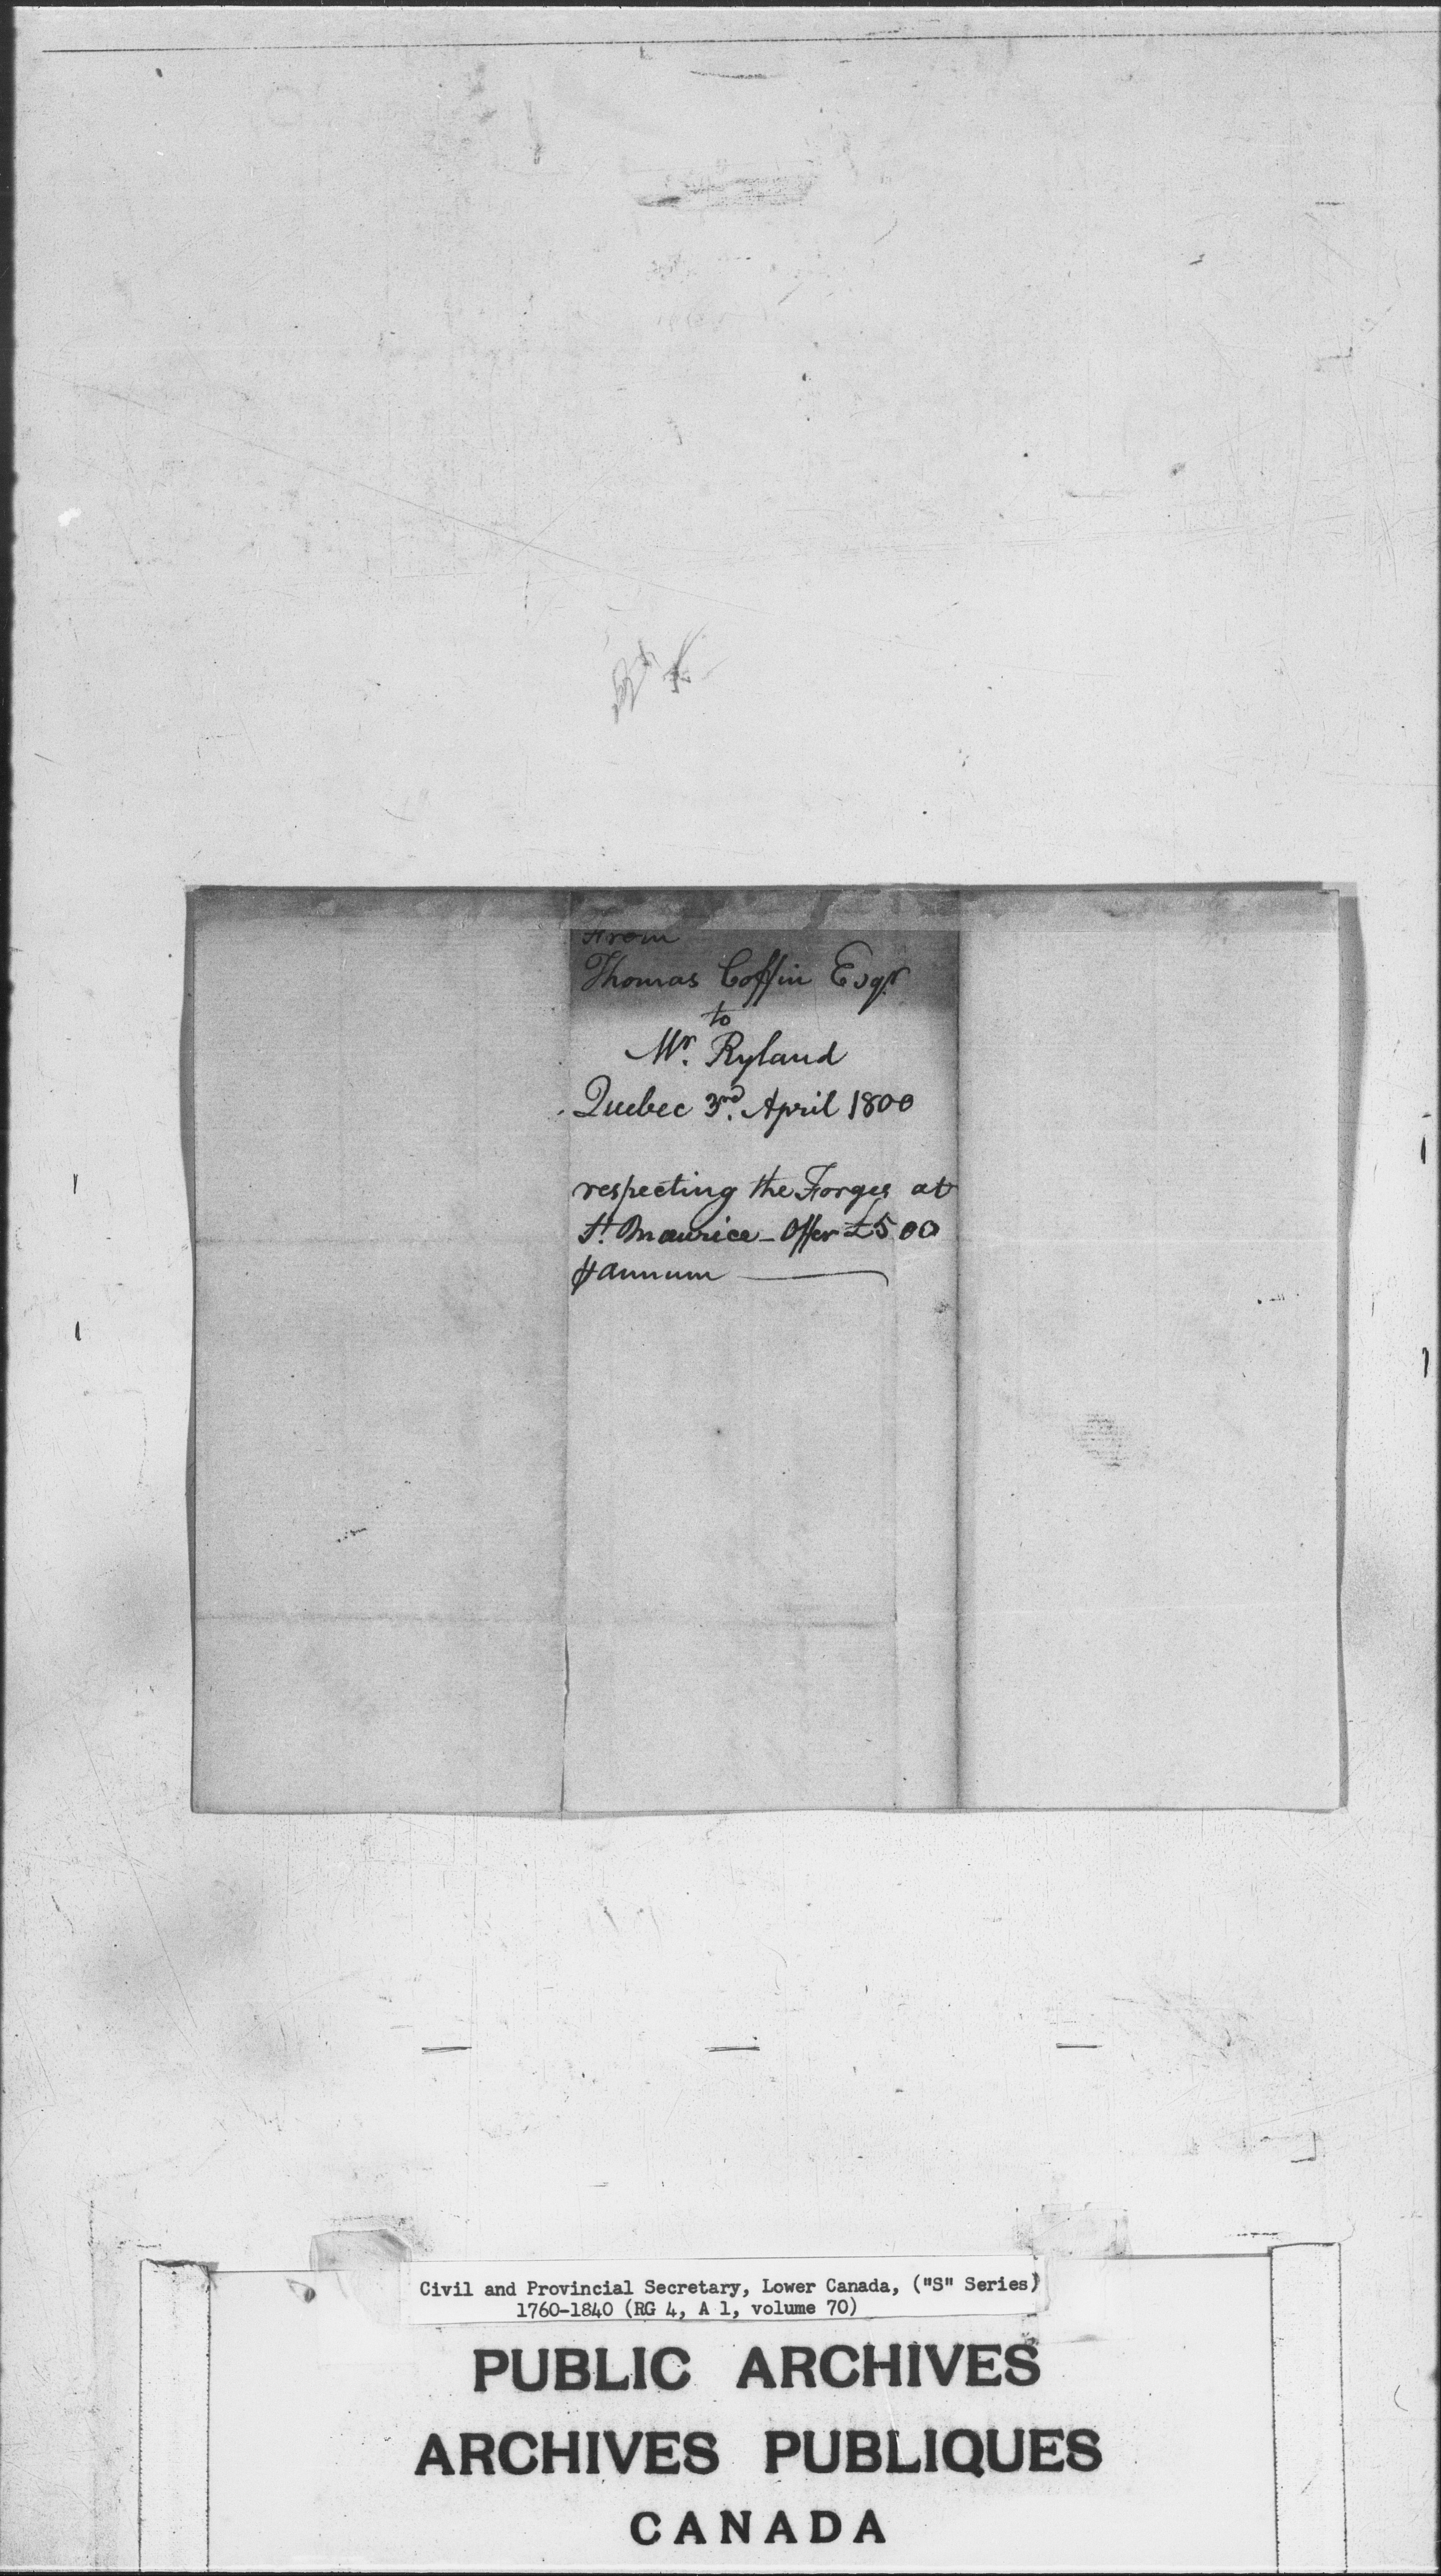 From
Thomas Coffin Esqr
to
Mr. Ryland
Quebec 3rd. April 1800
respecting the Forges at
St. Maurice - Offer £500
⅌ annum
Civil and Provincial Secretary, Lower Canada, ("S" Series)
1760-1840 (RG 4, A 1, volume 70)
PUBLIC ARCHIVES
ARCHIVES PUBLIQUES
CANADA